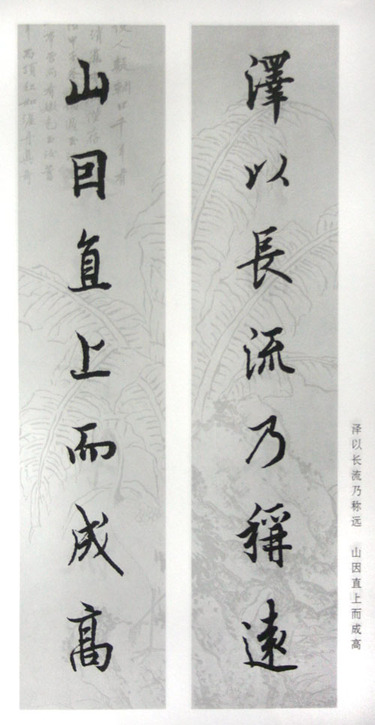 澤以長流乃稱遠
山因直上而成高
泽以长流乃称远 山因直上而成高